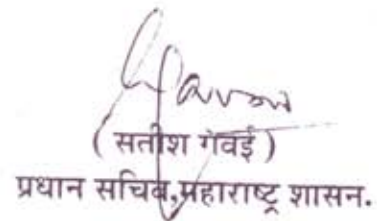 ( सतीश गवई )
प्रधान सचिव,महाराष्ट्र शासन.